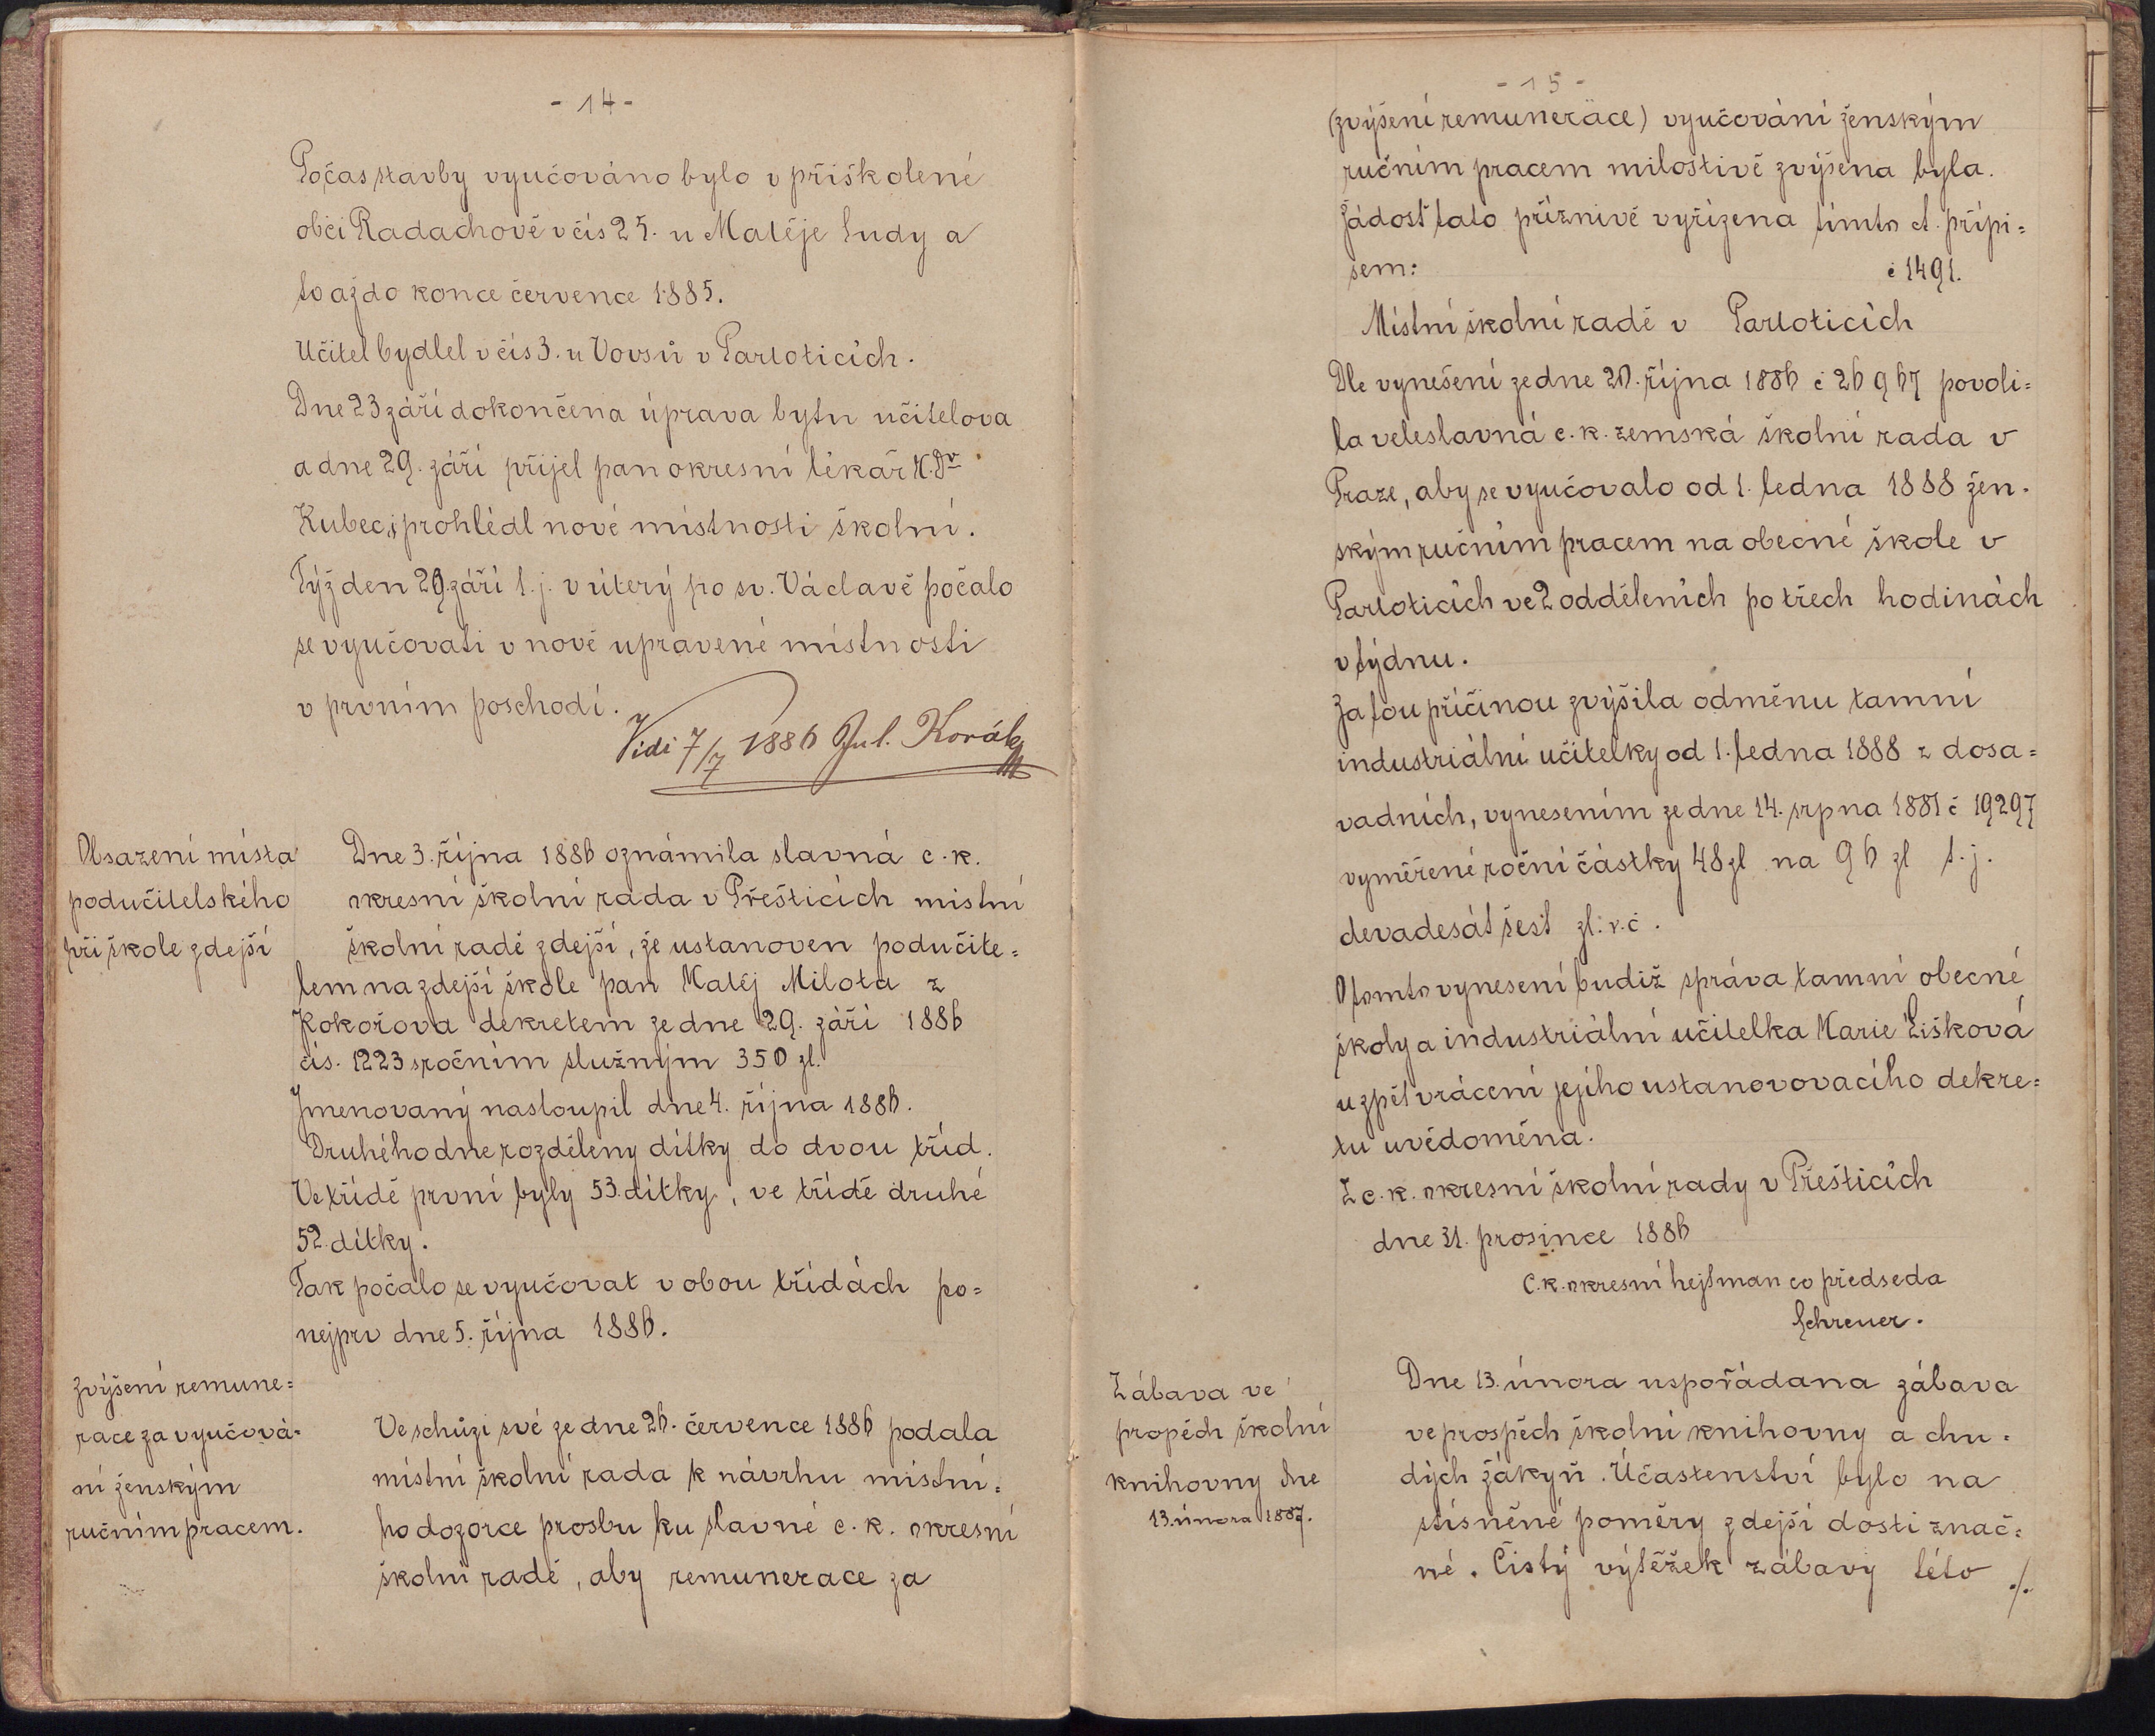 - 14 -
Počas stavby vyučováno bylo v přiškolené
obci Radachově v čís 25. u Matěje Ludy a
to až do konce července 1885.
Učitel bydlel v čís 3. u Vovsů v Partoticích.
Dne 23 září dokončena úprava bytu učitelova
a dne 29. září přijel pan okresní lékař M.Dr
Kubec, i prohlédl nové místnosti školní.
Týž den 29. září t. j. v úterý po sv. Václavě počalo
se vyučovati v nově upravené místnosti
v prvním poschodí.
Vidi 7/7 1886 Jul. Korálek
Obsazení místa
podučitelského
při škole zdejší
Dne 3. října 1886 oznámila slavná c. k.
okresní školní rada v Přešticích místní
školní radě zdejší, že ustanoven podučite=
lem na zdejší škole pan Matěj Milota z
Kokořova dekretem ze dne 29. září 1886
čís. 1223 s ročním služným 350 zl.
Jmenovaný nastoupil dne 4. října 1886.
Druhého dne rozděleny dítky do dvou tříd.
Ve třídě první byly 53 dítky, ve třídě druhé
52 dítky.
Tak počalo se vyučovat v obou třídách po=
nejprv dne 5. října 1886.
Zvýšení remune=
race za vyučová=
ní ženským
ručním pracem.
Ve schůzi své ze dne 26. července 1886 podala
místní školní rada k návrhu místní=
ho dozorce prosbu ku slavné c. k. okresní
školní radě, aby remunerace za
- 15 -
(zvýšení remunerace) vyučování ženským
ručním pracem milostivě zvýšena byla.
Žádost tato příznivě vyřízena tímto ct. přípi=
sem: č 1491.
Místní školní radě v Partoticích
Dle vynešení ze dne 20. října 1886 č 26967 povoli=
la veleslavná c. k. zemská školní rada v
Praze, aby se vyučovalo od 1. ledna 1888 žen=
ským ručním pracem na obecné škole v
Partoticích ve 2 odděleních po třech hodinách
v týdnu.
Za tou příčinou zvýšila odměnu tamní
industriální učitelky od 1. ledna 1888 z dosa=
vadních, vynesením ze dne 14. srpna 1881 č 19297
vyměřené roční částky 48 zl na 96 zl t. j.
devadesát šest zl. r. č.
O tomto vynesení budiž správa tamní obecné
školy a industriální učitelka Marie Lišková
u zpět vrácení jejího ustanovovacího dekre=
tu uvědoměna.
Z c. k. okresní školní rady v Přešticích
dne 31. prosince 1886
C. k. okresní hejtman co předseda
Schreuer.
Zábava ve
propěch školní
knihovny dne
13. února 1887.
Dne 13. února uspořádana zábava
ve prospěch školní knihovny a chu=
dých žákyň. Účastenství bylo na
stísněné poměry zdejší dosti znač=
né. Čistý výtěžek zábavy této ./.